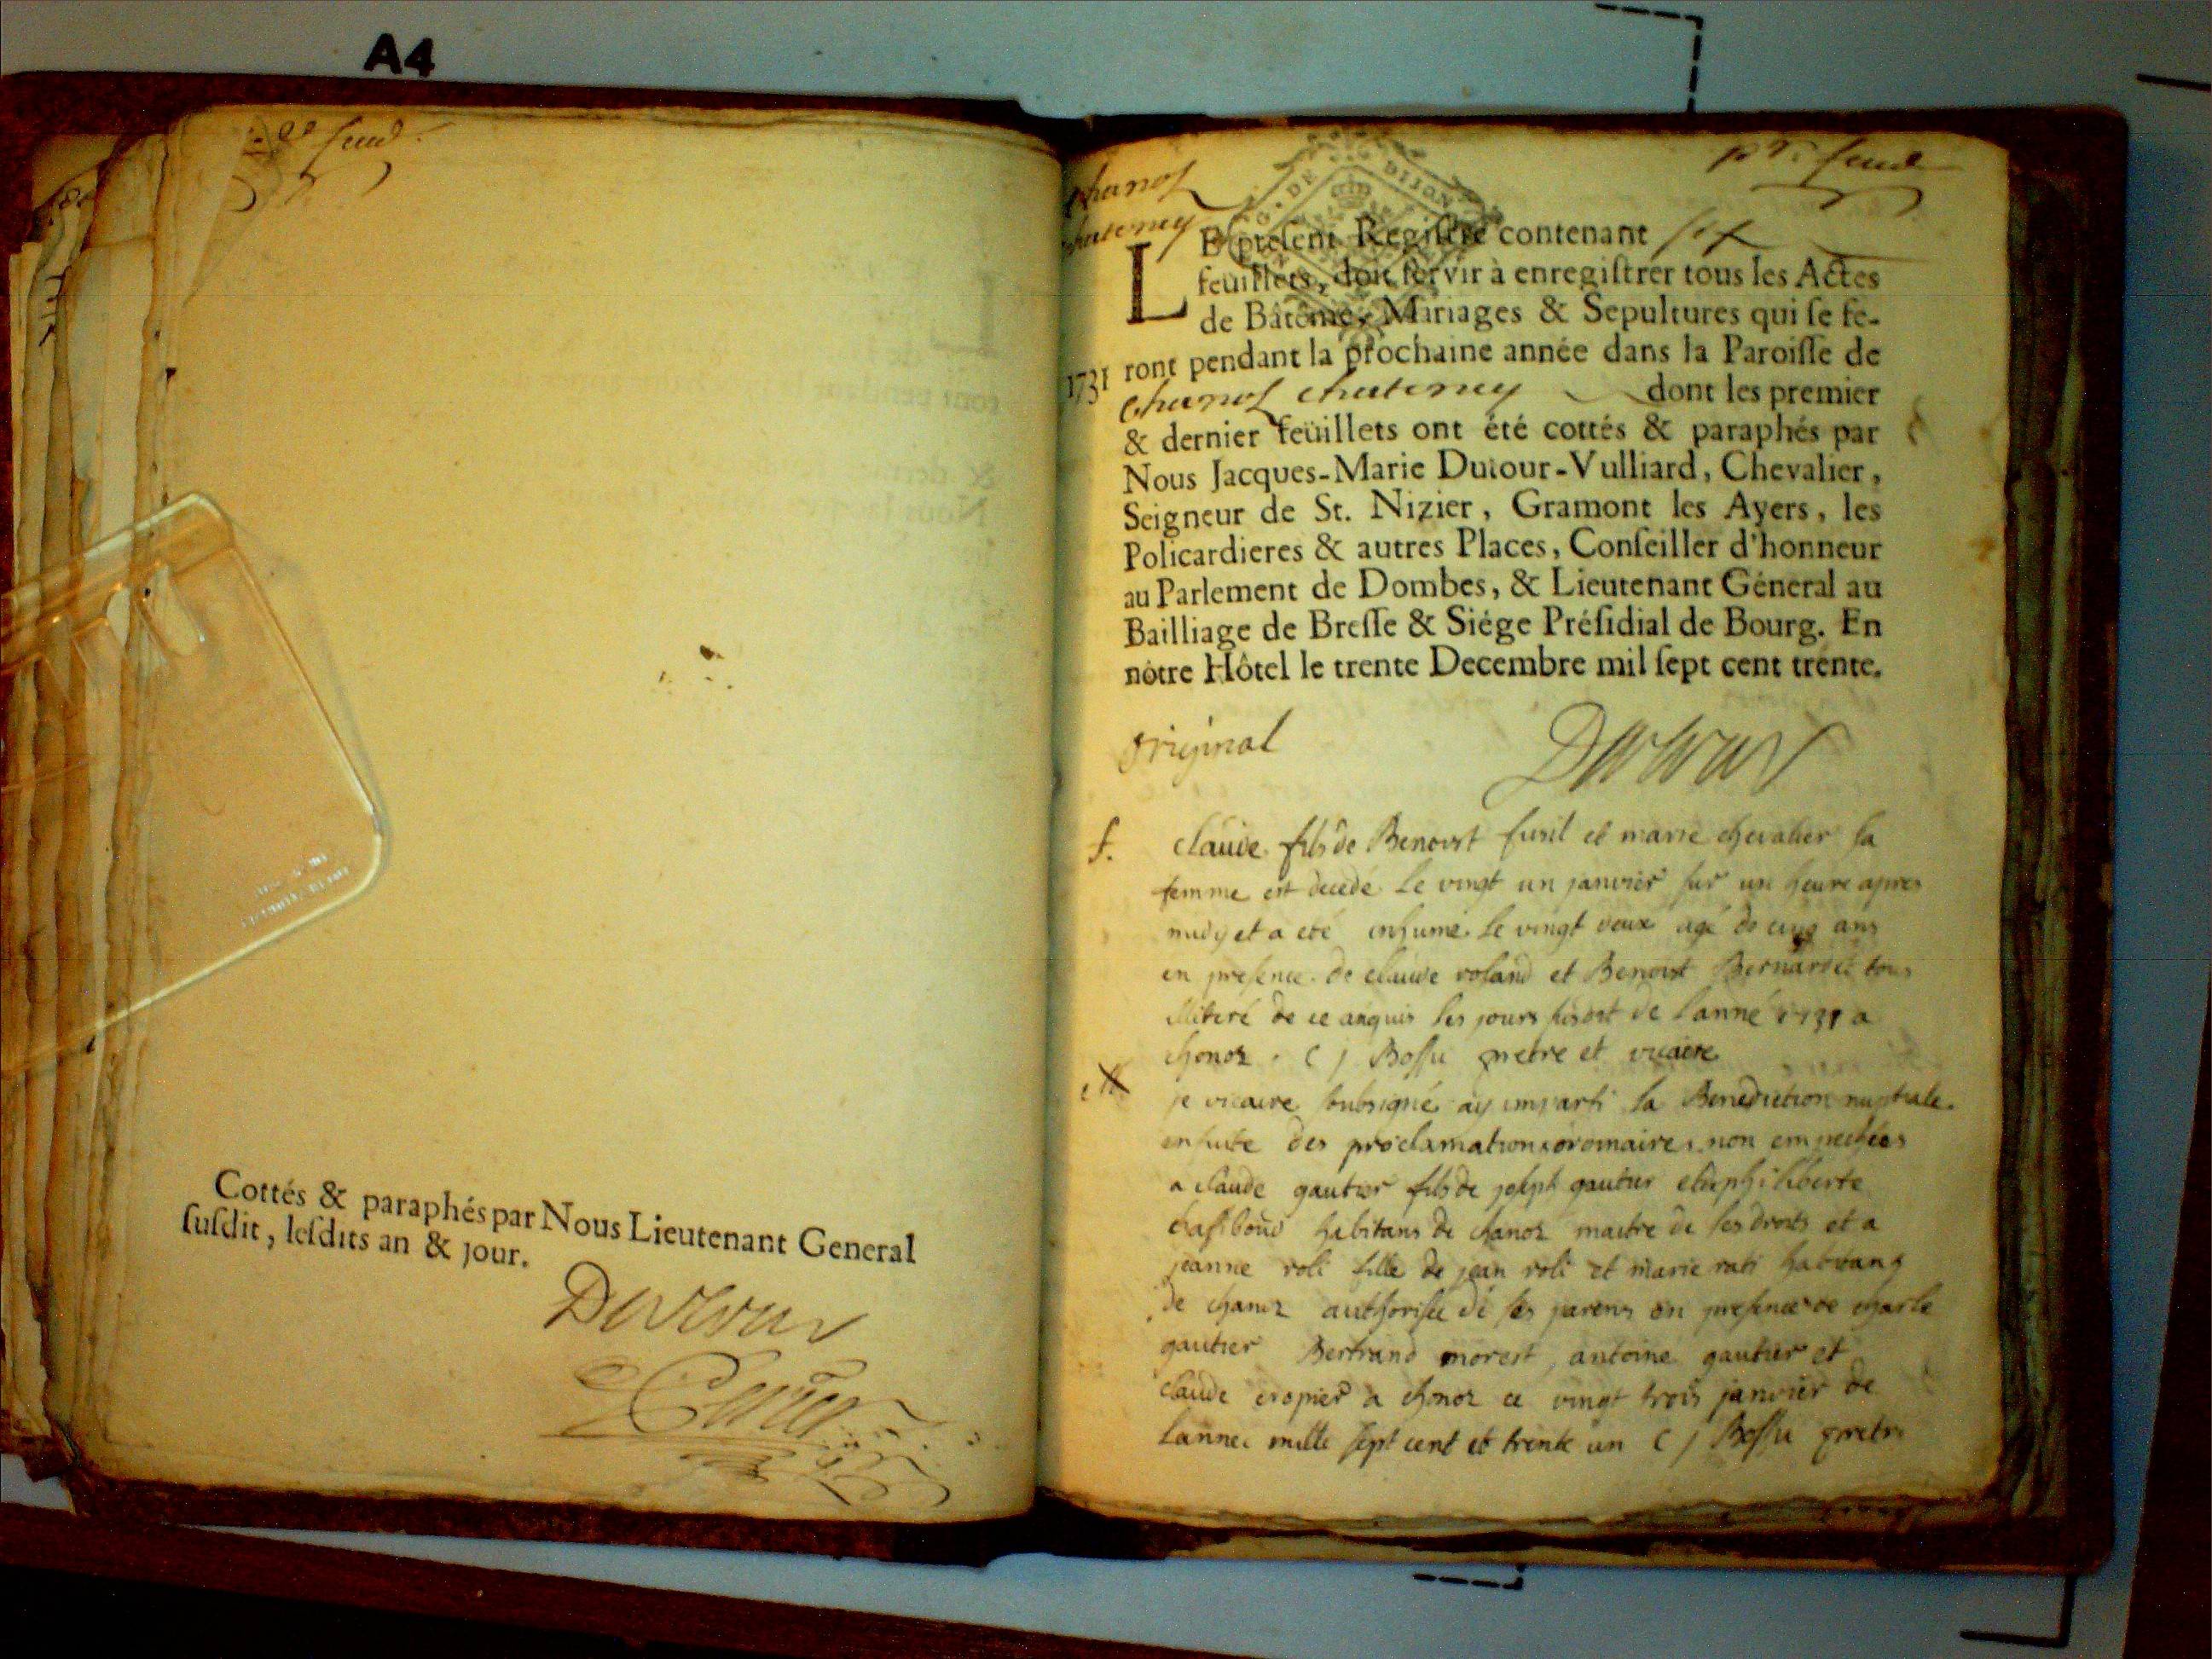 A4
Cottés & paraphés par Nous Lieutenant General
ſuſdit, leſdits an & jour.
chanoz
chatenay
G. DE DIJON
LE preſent Regiſtre contenant ſix
feuillets, doit ſervir à enregiſtrer tous les Actes
de Bâtême, Mariages & Sepultures qui ſe fe-
1731 ront pendant la prochaine année dans la Paroiſſe de
chanoz chatenay dont les premier
& dernier feüillets ont été cottés & paraphés par
Nous Jacques-Marie Dutour-Vulliard, Chevalier,
Seigneur de St. Nizier, Gramont les Ayers, les
Policardieres & autres Places, Conſeiller d'honneur
au Parlement de Dombes, & Lieutenant Géneral au
Bailliage de Breſſe & Siége Préſidial de Bourg. En
nôtre Hôtel le trente Decembre mil ſept cent trente.
original
f. claude fils de Benoist et marie chevalier sa
femme est decedé le vingt un janvier sur un heure apres
midy et a eté inhumé le vingt deux agé de cinq ans
en presence de claude roland et Benoist tous
illiteré de ce enquis les jours de l'anné 1731 a
chonoz. C j Bossu pretre et vicaire
je vicaire soubsigné ay imparti la Benediction nuptiale
ensuite des proclamations ordinaires non empechées
a claude gautier fils de joseph gautier et philiberte
habitans de chanoz maitre de ses droits et a
jeanne roli fille de jean roli et marie rati habitans
de chanoz authorisée de ses parens en presence de charle
gautier Bertrand morest antoine gautier et
claude cropier a chonoz ce vingt trois janvier de
l'annee mille sept cent et trente un C j Bossu pretre